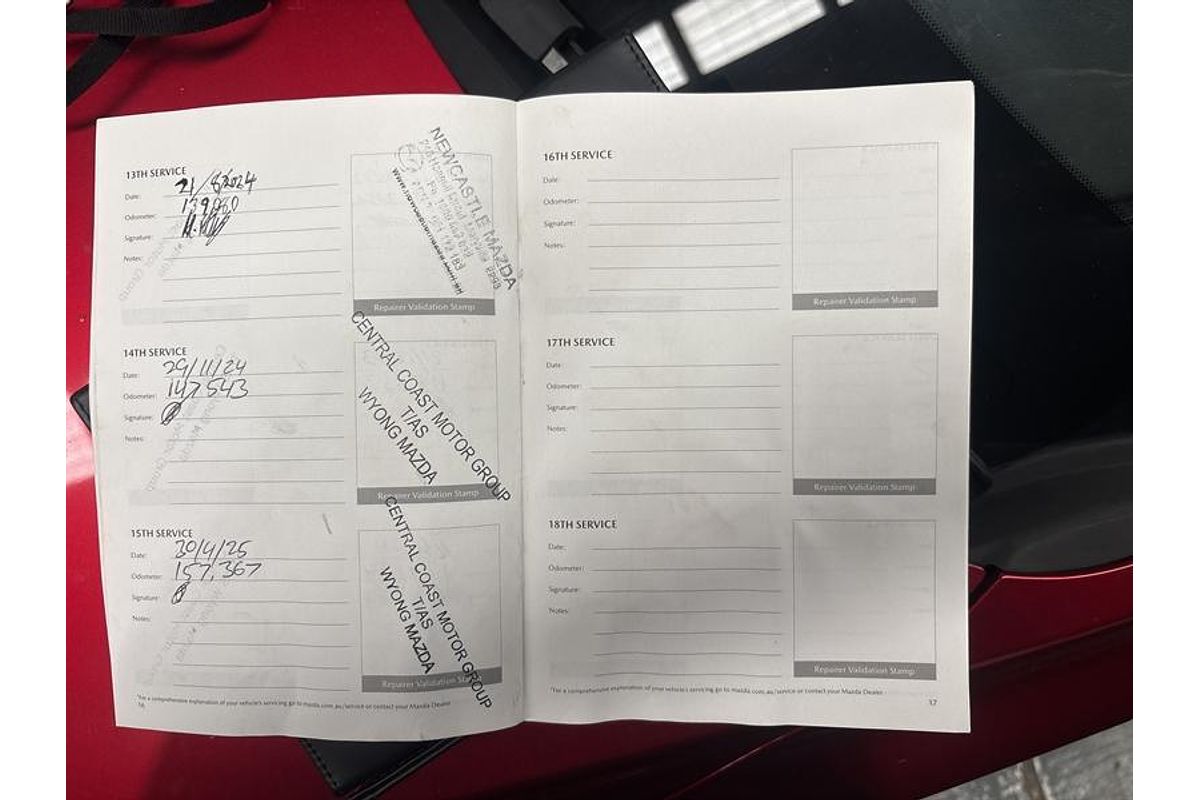 13TH SERVICE
Date: 21/8/2024
Odometer:
Signature:
Notes:
NEWCASTLE MAZDA
Repairer Validation Stamp
14TH SERVICE
Date: 29/11/24
Odometer: 147543
Signature:
Notes:
CENTRAL COAST MOTOR GROUP
T/AS
WYONG MAZDA
Repairer Validation Stamp
15TH SERVICE
Date: 30/4/25
Odometer: 157,367
Signature:
Notes:
CENTRAL COAST MOTOR GROUP
T/AS
WYONG MAZDA
Repairer Validation Stamp
*For a comprehensive explanation of your vehicle's servicing go to mazda.com.au/service or contact your Mazda Dealer
16
16TH SERVICE
Date:
Odometer:
Signature:
Notes:
Repairer Validation Stamp
17TH SERVICE
Date:
Odometer:
Signature:
Notes:
Repairer Validation Stamp
18TH SERVICE
Date:
Odometer:
Signature:
Notes:
Repairer Validation Stamp
*For a comprehensive explanation of your vehicle's servicing go to mazda.com.au/service or contact your Mazda Dealer
17